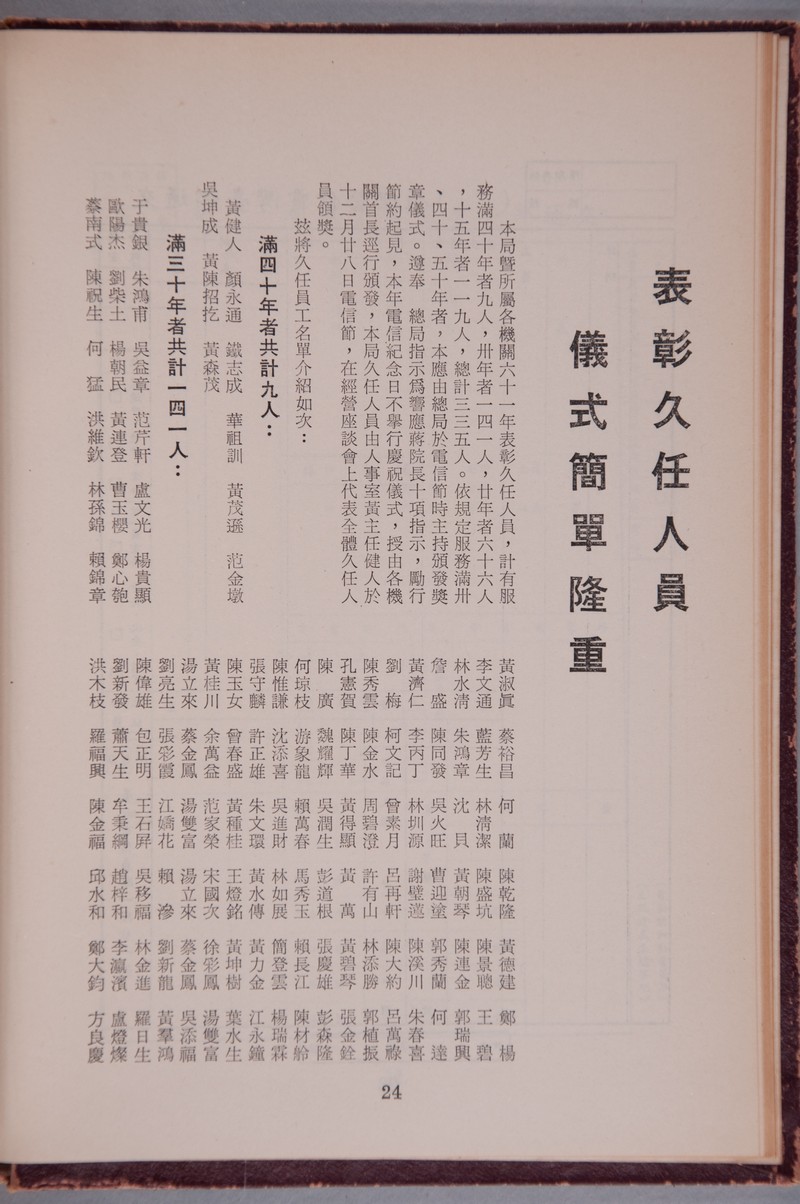 表彰久任人員
儀式簡單隆重
本局暨所屬各機關六十一年表彰久任人員，計有服
務滿四十年者九人，卅年者一四一人，廿年者六十六人
，十五年者一一九人，總計三三五人。依規定服務滿卅
、四十、五十年者，本應由總局於電信節時主持頒發獎
章儀式。遵奉　總局指示爲響應蔣院長十項指示，勵行
節約起見，本年電信紀念日不舉行慶祝儀式，授由各機
關首長逕行頒發，本局久任人員由人事室黃主任健人於
十二月廿八日電信節，在經營座談會上代表全體久任人
員領獎。
茲將久任員工名單介紹如次：
滿四十年者共計九人：
黃健人　顏永通　鐵志成　華祖訓　黃茂遜　范金墩
吳坤成　黃陳招扢　黃森茂
滿三十年者共計一四一人：
于貴銀　朱鴻甫　吳益章　范芹軒　盧文光　楊貴顯
歐陽杰　劉柴土　楊朝民　黃連登　曹玉櫻　鄭心匏
蔡南式　陳祝生　何　猛　洪維欽　林孫錦　賴錦章
黃淑眞　蔡裕昌　何　蘭　陳乾隆　黃德建　鄭　楊
李文通　藍芳生　林清潔　陳盛坑　陳景聰　王　碧
林水清　朱鴻章　沈　貝　黃朝琴　陳連金　郭瑞興
詹　盛　陳同發　吳火旺　曹迎塗　郭秀蘭　何　達
黃濟仁　李丙丁　林圳源　謝璧　陳溪川　朱春喜
劉　梅　柯文記　曾素月　呂再軒　陳大約　呂萬祿
陳秀雲　陳金水　周碧澄　許有山　林添勝　郭植振
孔憲賀　陳丁華　黃得顯　黃　萬　黃碧琴　張金銓
陳　廣　魏耀輝　吳潤生　彭道根　張慶雄　彭森隆
何琼枝　游象龍　賴萬春　馬秀玉　賴長江　陳材舲
陳惟謙　沈添喜　吳進財　林如展　簡登雲　楊瑞霖
張守麟　許正雄　朱文環　黃水傳　黃力金　江永鐘
陳玉女　曾春盛　黃種桂　王燈銘　黃坤樹　葉水生
黃桂川　余萬益　范家榮　宋國次　徐彩鳳　湯雙富
湯立來　蔡金鳳　湯雙富　湯立來　蔡金鳳　吳添福
劉亮生　張彩霞　江嬌花　賴　滲　劉新龍　黃羣鴻
陳偉雄　包正明　王石屏　吳移福　林金進　羅日生
劉新發　蕭天生　牟秉綱　趙梓和　李瀛濱　盧燈燦
洪木枝　羅福興　陳金福　邱水和　鄭大鈞　方良慶
24